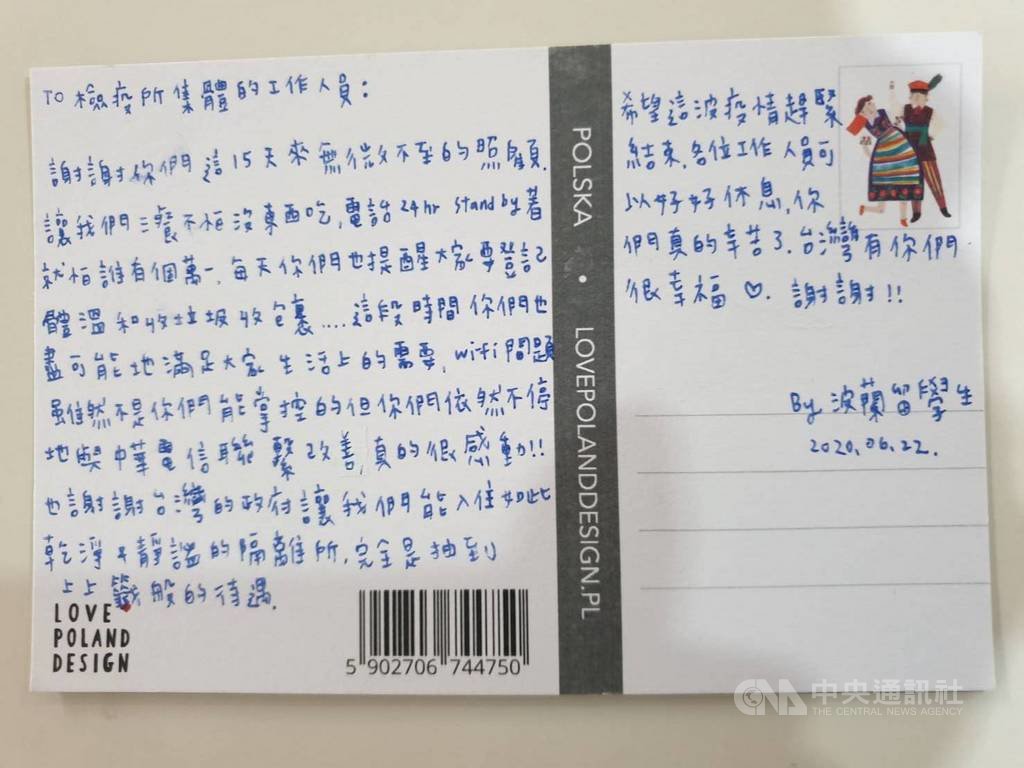 TO 檢疫所集體的工作人員：
謝謝你們這15天來無微不至的照顧.
讓我們三餐不怕沒東西吃, 電話24hr stand by著
就怕誰有個萬一. 每天你們也提醒大家要登記
體溫和收垃圾收包裹....這段時間你們也
盡可能地滿足大家生活上的需要, wifi問題
雖然不是你們能掌控的但你們依然不停
地與中華電信聯繫改善, 真的很感動!!
也謝謝台灣的政府讓我們能入住如此
乾淨&靜謐的隔離所, 完全是抽到
上上籤般的待遇.
LOVE
POLAND
DESIGN
5 902706 744750
POLSKA • LOVEPOLANDDESIGN.PL
希望這波疫情趕緊
結束, 各位工作人員可
以好好休息, 你
們真的辛苦了. 台灣有你們
很幸福♡. 謝謝!!
By 波蘭留學生
2020.06.22.
CNA 中央通訊社
THE CENTRAL NEWS AGENCY